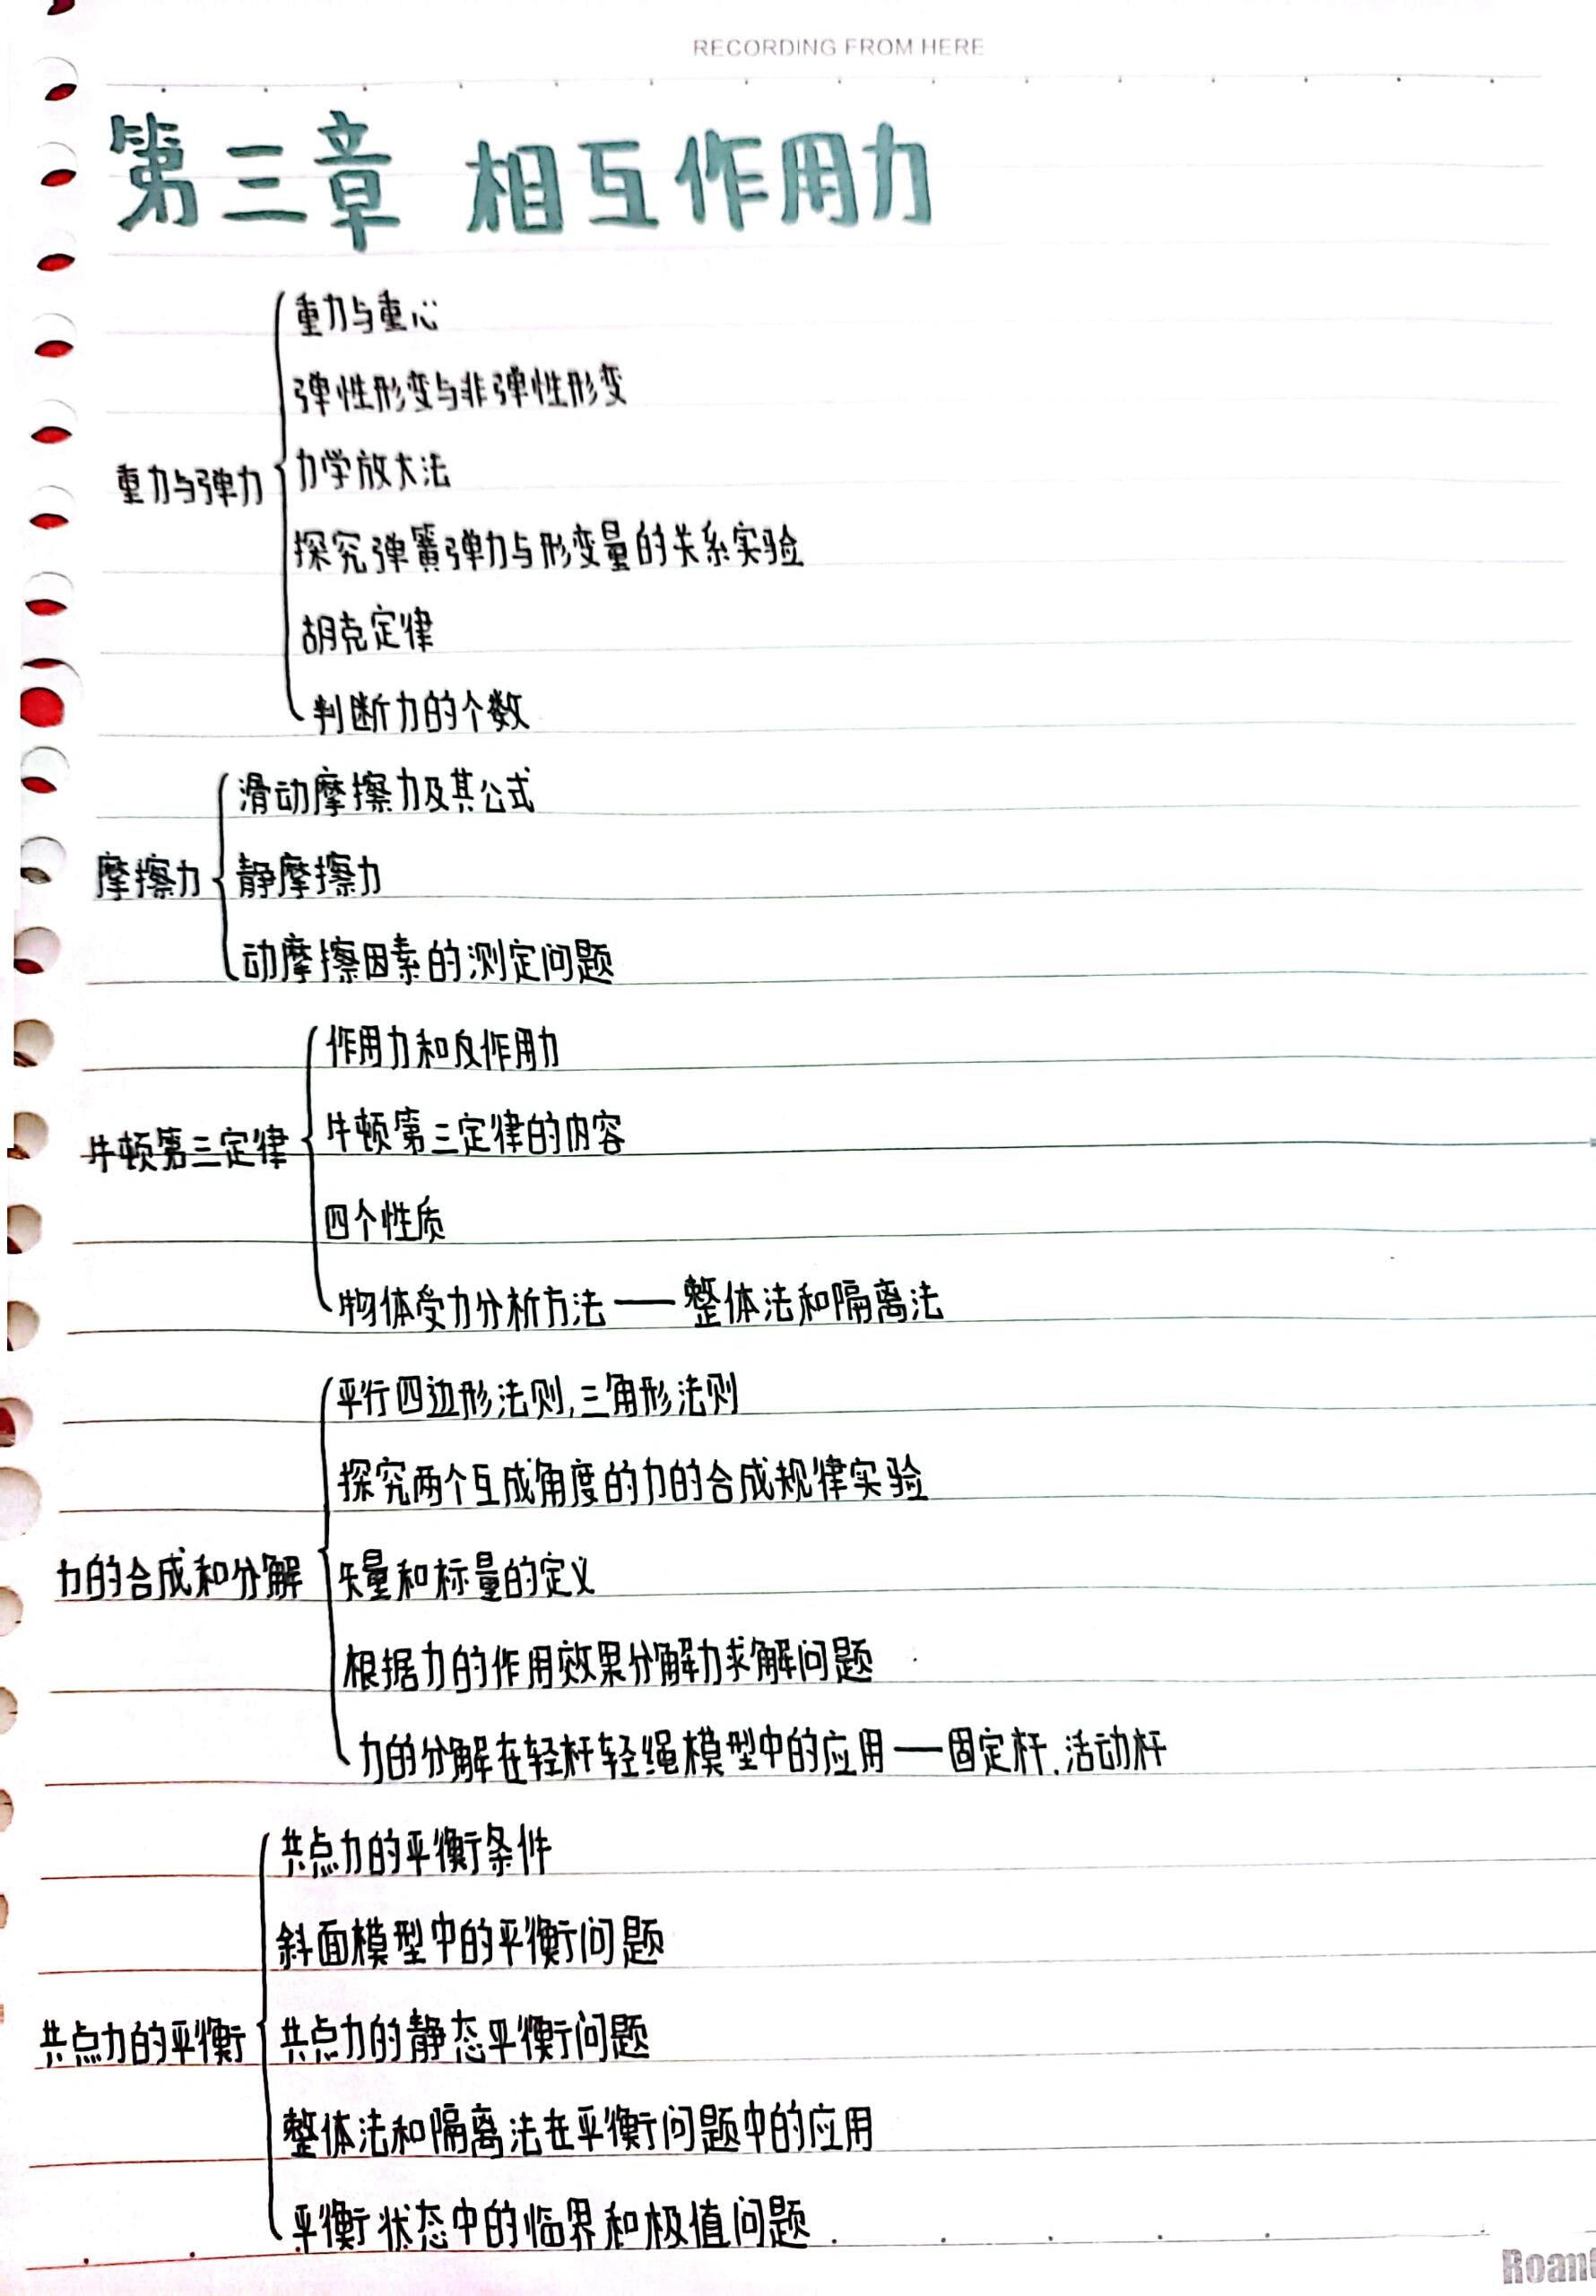 RECORDING FROM HERE
第三章 相互作用力
重力与重心
弹性形变与非弹性形变
力学放大法
重力与弹力
探究弹簧弹力与形变量的关系实验
胡克定律
判断力的个数
滑动摩擦力及其公式
摩擦力
静摩擦力
动摩擦因素的测定问题
作用力和反作用力
牛顿第三定律的内容
牛顿第三定律
四个性质
物体受力分析方法——整体法和隔离法
平行四边形法则,三角形法则
探究两个互成角度的力的合成规律实验
力的合成和分解
矢量和标量的定义
根据力的作用效果分解力求解问题
力的分解在轻杆轻绳模型中的应用——固定杆,活动杆
共点力的平衡条件
斜面模型中的平衡问题
共点力的平衡
共点力的静态平衡问题
整体法和隔离法在平衡问题中的应用
平衡状态中的临界和极值问题